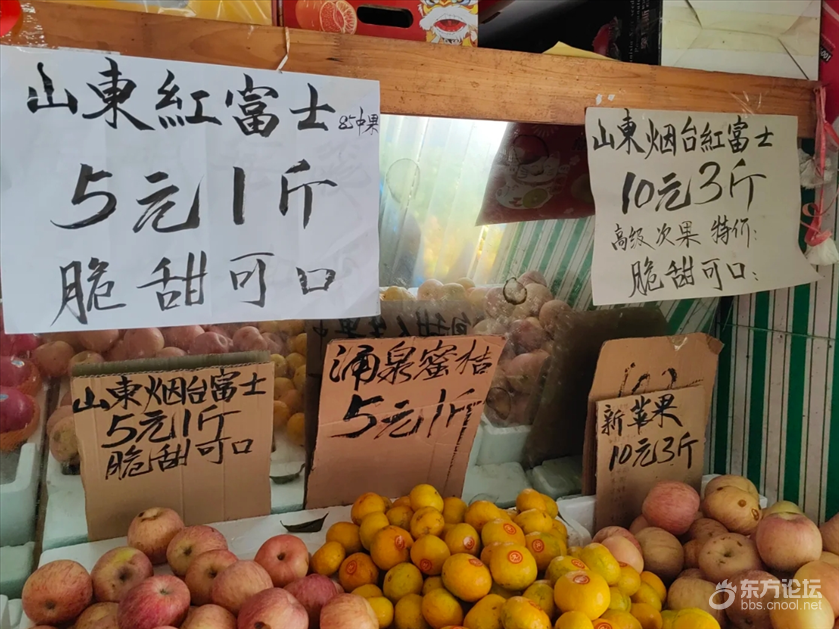 山東紅富士 85中果
5元1斤
脆甜可口
山東烟台紅富士
10元3斤
高级次果 特价:
脆甜可口:
山东烟台富士
5元1斤
脆甜可口
涌泉蜜桔
5元1斤
新苹果
10元3斤
东方论坛
bbs.cnool.net